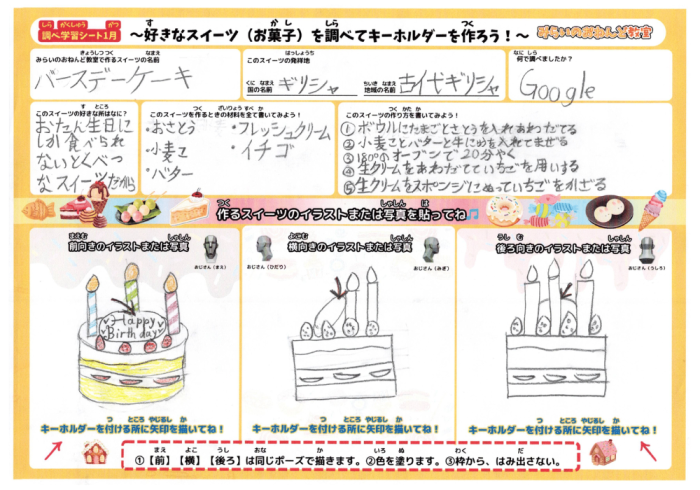 調べ学習シート1月
～好きなスイーツ（お菓子）を調べてキーホルダーを作ろう！～
みらいのおねんど教室
みらいのおねんど教室で作るスイーツの名前
バースデーケーキ
このスイーツの発祥地
国の名前 ギリシャ
地域の名前 古代ギリシャ
何で調べましたか？
Google
このスイーツの好きな所はなに？
おたん生日に
しか食べられ
ないとくべつ
なスイーツだから
このスイーツを作るときの材料を全て書いてみよう！
・おさとう
・小麦こ
・バター
・フレッシュクリーム
・イチゴ
このスイーツの作り方を書いてみよう！
①ボウルにたまごとさとうを入れあわだてる
②小麦ことバターと牛にゅうを入れてまぜる
③180°のオーブンで20分やく
④生クリームをあわだてていちごを用いする
⑤生クリームをスポンジにぬっていちごをかざる
作るスイーツのイラストまたは写真を貼ってね
前向きのイラストまたは写真
おじさん（まえ）
横向きのイラストまたは写真
おじさん（ひだり）
おじさん（みぎ）
後ろ向きのイラストまたは写真
おじさん（うしろ）
Happy
Birthday
キーホルダーを付ける所に矢印を描いてね！
キーホルダーを付ける所に矢印を描いてね！
キーホルダーを付ける所に矢印を描いてね！
①【前】【横】【後ろ】は同じポーズで描きます。②色を塗ります。③枠から、はみ出さない。